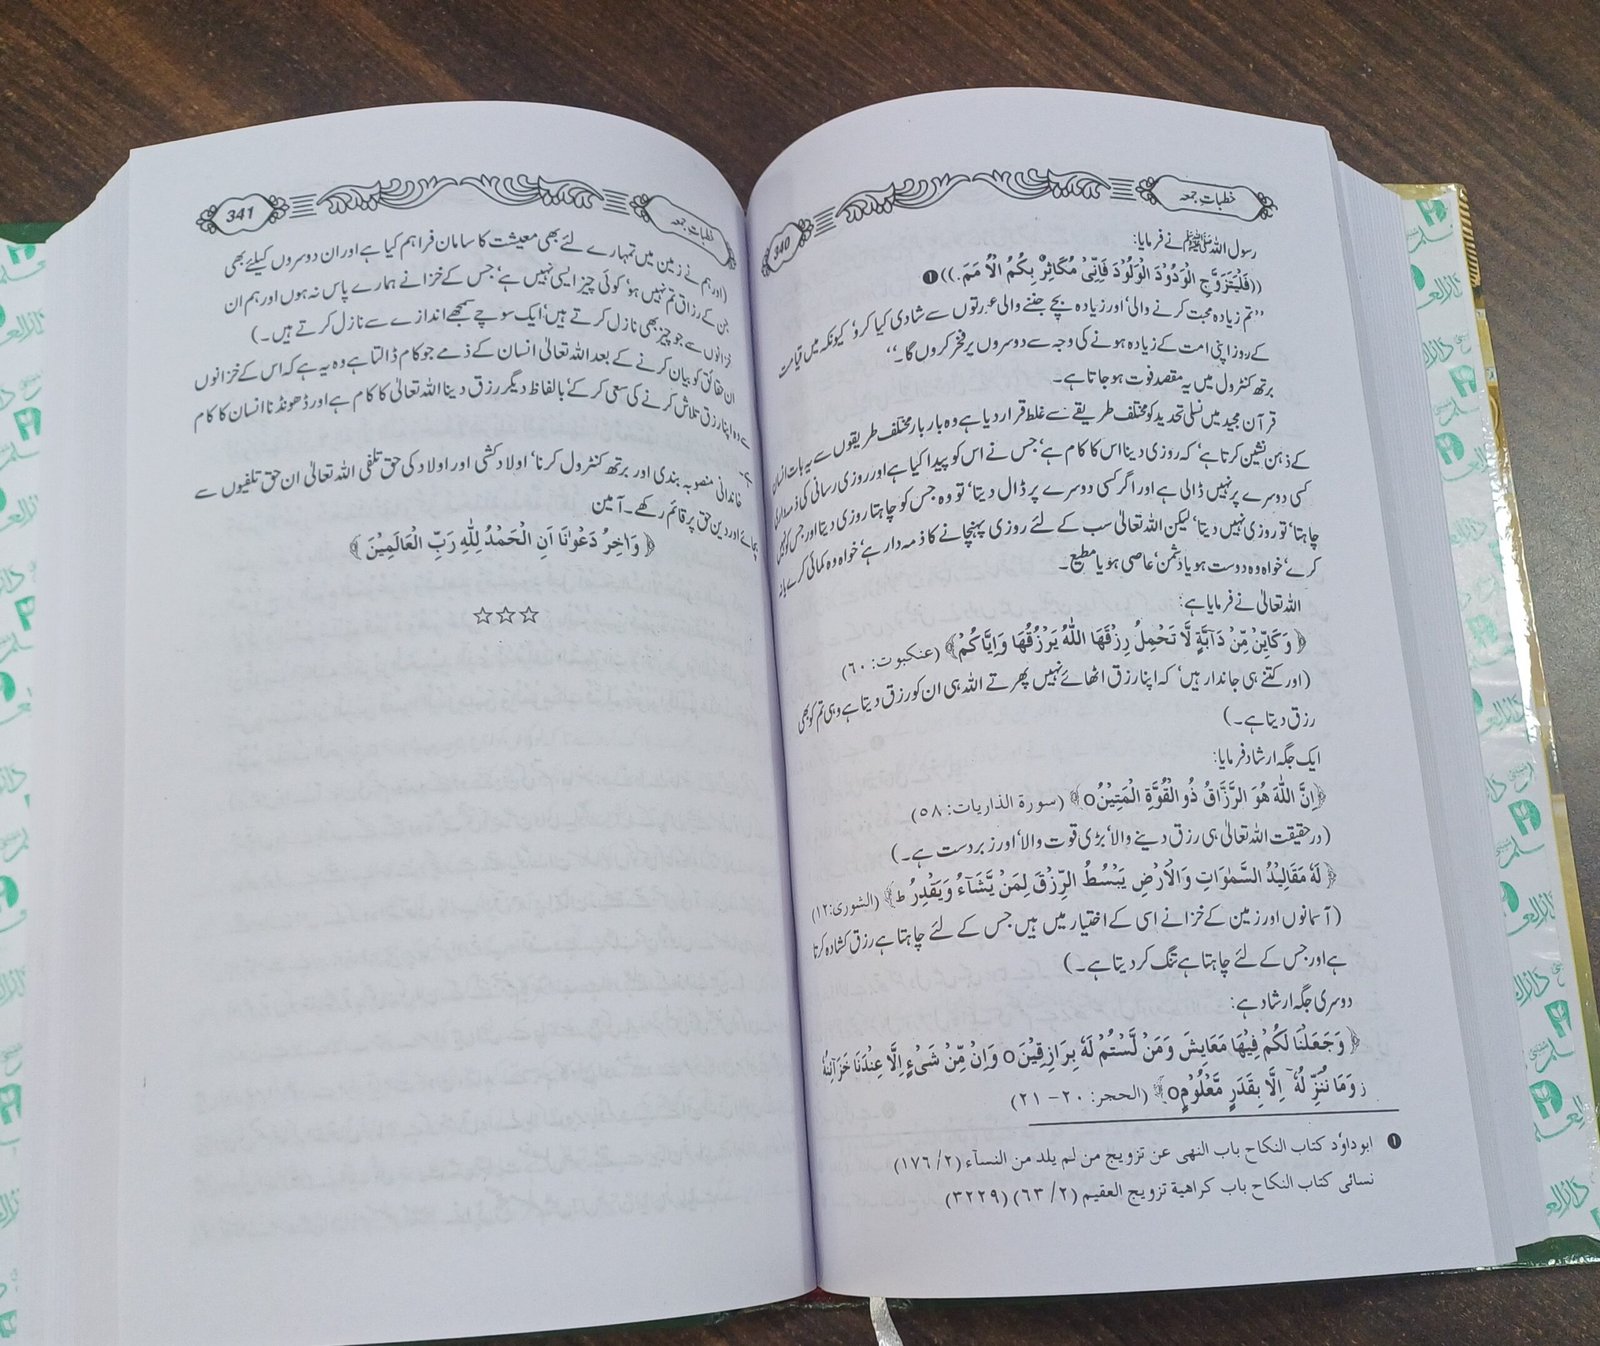 خطبات جمعہ
340
رسول اللہ ﷺ نے فرمایا:
((فَلْيَتَزَوَّجِ الْوَدُوْدَ الْوَلُوْدَ فَاِنِّىْ مُكَاثِرٌ بِكُمُ الْاُمَمَ.)) ❶
’’تم زیادہ محبت کرنے والی‘ اور زیادہ بچے جننے والی عورتوں سے شادی کیا کرو‘ کیونکہ میں قیامت
کے روز اپنی امت کے زیادہ ہونے کی وجہ سے دوسروں پر فخر کروں گا۔‘‘
برتھ کنٹرول میں یہ مقصد فوت ہو جاتا ہے۔
قرآن مجید میں نسلی تحدید کو مختلف طریقے سے غلط قرار دیا ہے وہ بار بار مختلف طریقوں سے یہ بات انسان
کے ذہن نشین کرتا ہے‘ کہ روزی دینا اس کا کام ہے‘ جس نے اس کو پیدا کیا ہے اور روزی رسانی کی ذمہ داری
کسی دوسرے پر نہیں ڈالی ہے اور اگر کسی دوسرے پر ڈال دیتا‘ تو وہ جس کو چاہتا روزی دیتا اور جس کو نہیں
چاہتا‘ تو روزی نہیں دیتا‘ لیکن اللہ تعالیٰ سب کے لئے روزی پہنچانے کا ذمہ دار ہے‘ خواہ وہ کمائی کرے یا نہ
کرے‘ خواہ وہ دوست ہو یا دشمن‘ عاصی ہو یا مطیع۔
اللہ تعالیٰ نے فرمایا ہے:
﴿ وَكَاَيِّنْ مِّنْ دَآبَّةٍ لَّا تَحْمِلُ رِزْقَهَا اللّٰهُ يَرْزُقُهَا وَاِيَّاكُمْ﴾ (عنکبوت: ٦٠)
(اور کتنے ہی جاندار ہیں‘ کہ اپنا رزق اٹھائے نہیں پھرتے اللہ ہی ان کو رزق دیتا ہے وہی تم کو بھی
رزق دیتا ہے۔)
ایک جگہ ارشاد فرمایا:
﴿اِنَّ اللّٰهَ هُوَ الرَّزَّاقُ ذُو الْقُوَّةِ الْمَتِيْنُ○﴾ (سورة الذاريات: ٥٨)
(درحقیقت اللہ تعالیٰ ہی رزق دینے والا‘ بڑی قوت والا‘ اور زبردست ہے۔)
﴿ لَهٗ مَقَالِيْدُ السَّمٰوَاتِ وَالْاَرْضِ يَبْسُطُ الرِّزْقَ لِمَنْ يَّشَآءُ وَيَقْدِرُ ط﴾ (الشورى:١٢)
(آسمانوں اور زمین کے خزانے اسی کے اختیار میں ہیں‘ جس کے لئے چاہتا ہے رزق کشادہ کرتا
ہے اور جس کے لئے چاہتا ہے تنگ کر دیتا ہے۔)
دوسری جگہ ارشاد ہے:
﴿وَجَعَلْنَا لَكُمْ فِيْهَا مَعَايِشَ وَمَنْ لَّسْتُمْ لَهٗ بِرَازِقِيْنَ○ وَاِنْ مِّنْ شَىْءٍ اِلَّا عِنْدَنَا خَزَآئِنُهٗ
ز وَمَا نُنَزِّلُهٗ اِلَّا بِقَدَرٍ مَّعْلُوْمٍ○﴾ (الحجر: ٢٠-٢١)
❶ ابوداؤد كتاب النكاح باب النهى عن تزويج من لم يلد من النسآء (١٧٦/٢)
نسائى كتاب النكاح باب كراهية تزويج العقيم (٦٣/٢) (٣٢٢٩)
خطبات جمعہ
341
(اور ہم نے زمین میں تمہارے لئے بھی معیشت کا سامان فراہم کیا ہے اور ان دوسروں کیلئے بھی
جن کے رزاق تم نہیں ہو‘ کوئی چیز ایسی نہیں ہے‘ جس کے خزانے ہمارے پاس نہ ہوں اور ہم ان
خزانوں سے جو چیز بھی نازل کرتے ہیں‘ ایک سوچے سمجھے اندازے سے نازل کرتے ہیں۔)
ان حقائق کو بیان کرنے کے بعد اللہ تعالیٰ انسان کے ذمے جو کام ڈالتا ہے وہ یہ ہے کہ اس کے خزانوں
سے وہ اپنا رزق تلاش کرنے کی سعی کر کے‘ بالفاظ دیگر رزق دینا اللہ تعالیٰ کا کام ہے اور ڈھونڈنا انسان کا کام
ہے۔
خاندانی منصوبہ بندی اور برتھ کنٹرول کرنا‘ اولاد کشی اور اولاد کی حق تلفی اللہ تعالیٰ ان حق تلفیوں سے
بچائے اور دین حق پر قائم رکھے۔ آمین
﴿ وَاٰخِرُ دَعْوٰنَا اَنِ الْحَمْدُ لِلّٰهِ رَبِّ الْعَالَمِيْنَ ﴾
☆☆☆